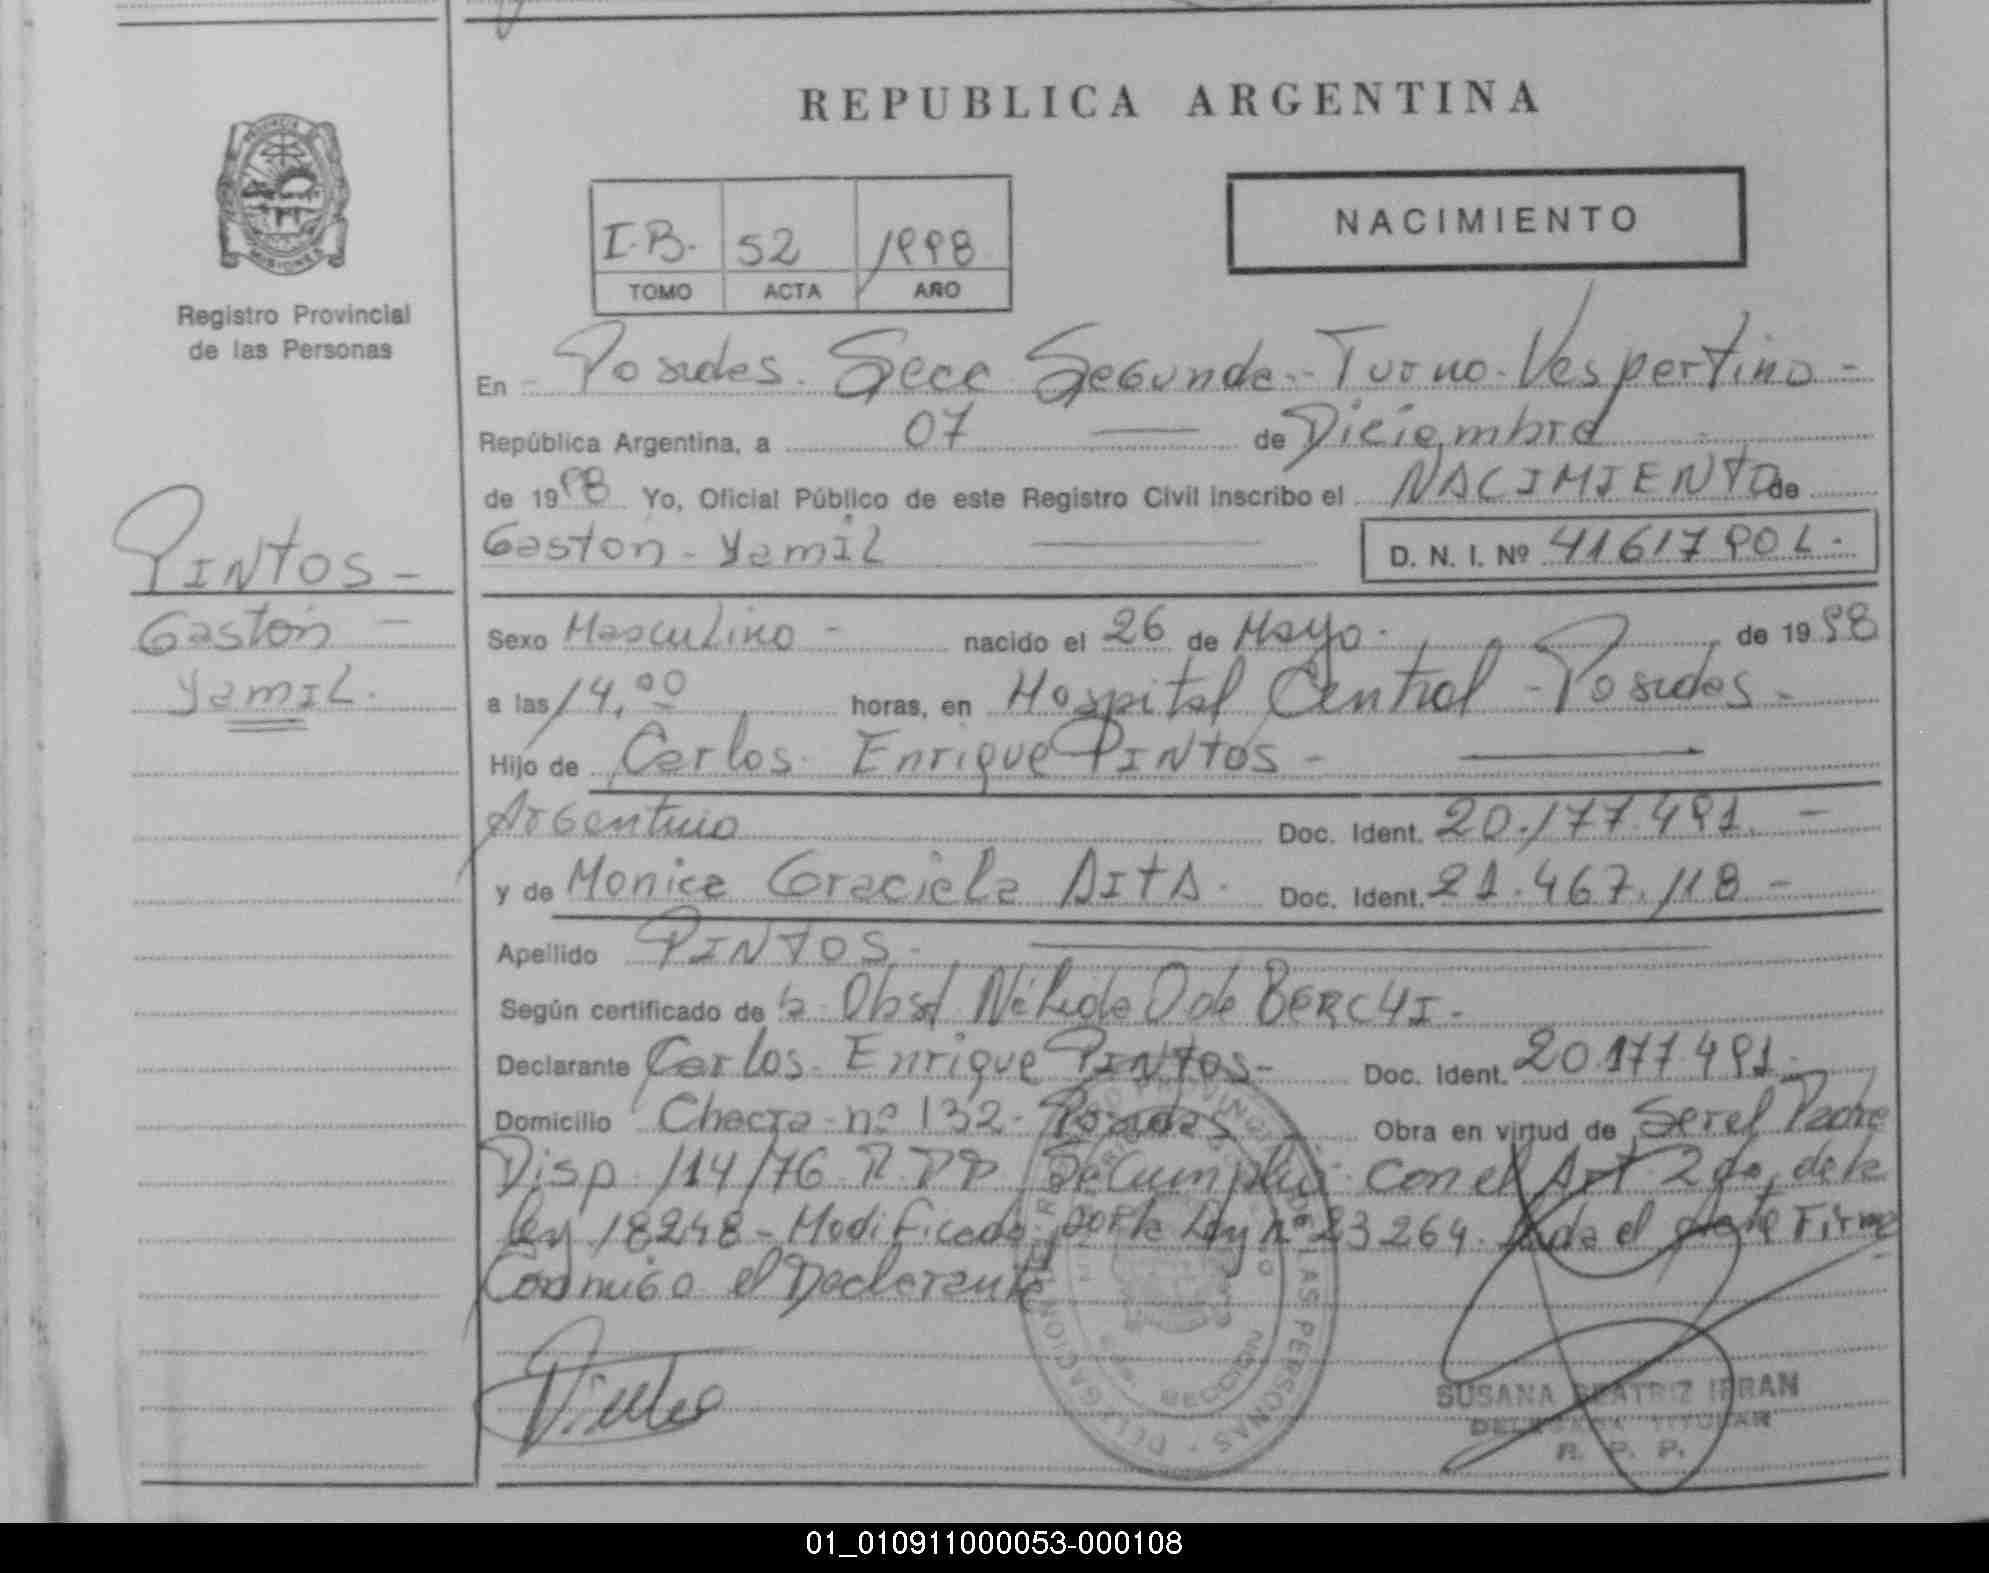 REPUBLICA ARGENTINA
NACIMIENTO
I.B. 52 1998
TOMO ACTA AÑO
Registro Provincial
de las Personas
En - Posadas. Secc Segunda - Turno - Vespertino -
República Argentina, a 07 — de Diciembre
de 1998 Yo, Oficial Público de este Registro Civil inscribo el NACIMIENTO de
Gastón - Yamil — D. N. I. Nº 41617901.
PINTOS -
Gastón -
Yamil.
Sexo Masculino - nacido el 26 de Mayo. de 1998
a las 14,00 horas, en Hospital Central - Posadas -
Hijo de Carlos Enrique PINTOS -
Argentino Doc. Ident. 20.177.491. -
y de Monica Graciela AITA. Doc. Ident. 21.467.118 -
Apellido PINTOS -
Según certificado de la Obst Nelida O de BERCHI -
Declarante Carlos Enrique PINTOS - Doc. Ident. 20.177.491 -
Domicilio Chacra - nº 132 - Posadas Obra en virtud de Ser el Padre
Disp. 114/76 R.P.P. Se Cumplió con el Art 2do, de la
ley 18248 - Modificado por la Ley nº 23264. Leída el Acta Firma
Conmigo el Declarante
REGISTRO PROVINCIAL DE LAS PERSONAS - DELEGACION
MISIONES
SECCION
SUSANA BEATRIZ IRRAN
DELEGADA TITULAR
R. P. P.
01_010911000053-000108